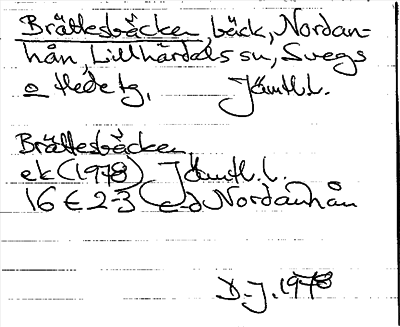 Brättesbäcken, bäck, Nordan-
hån, Lillhärdals sn, Svegs
o Hede tg, Jämtl.l.
Brättesbäcken
ek (1978) Jämtl.l.
16 E 2-3 c-d Nordanhån
D.J. 1978